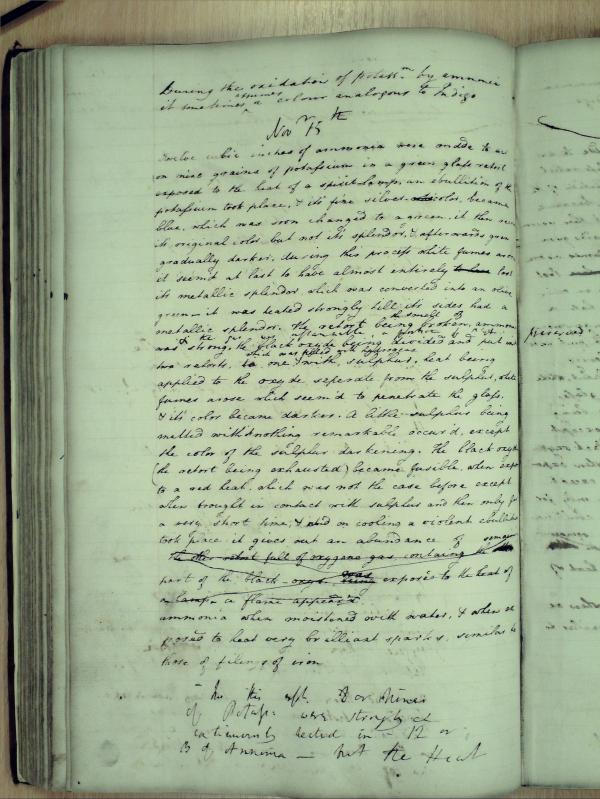 During the oxidation of potassm by ammonia
it sometimes assumes a colour analogous to Indigo
Novr 15th
Twelve cubic inches of ammonia were made to act
on nine grains of potassium in a green glass retort
exposed to the heat of a spirit lamp, an ebullition of the
potassium took place, & its fine silver color, became
blue, which was soon changed to a green, it then
its original color but not its splendor, & afterwards grew
gradually darker. during this process white fumes arose
it seem'd at last to have almost entirely lost
its metallic splendor which was converted into an olive
green - it was heated strongly till its sides had a
metallic splendor. the retort being broken, the smell of ammonia
was strong, & the black oxyde being divided and put into
two retorts, one was filled with hydrogene with sulphur, heat being
applied to the oxyde seperate from the sulphur, white
fumes arose which seem'd to penetrate the glass,
& its color became darker. A little sulphur being
melted with nothing remarkable occur'd, except
the color of the sulphur darkening. The black oxyde
(the retort being exhausted) became fusible, when exposed
to a red heat, which was not the case before except
when brought in contact with sulphur and then only for
a very short time, & on cooling a violent ebullition
took place, it gives out an abundance of
the other retort full of oxygene gas, containing the
part of the black oxyde was exposed to the heat of
a lamp a flame appear'd
ammonia when moistened with water, & when ex
posed to heat very brilliant sparks, similar to
those of filings of iron
In this expt. 8 or nine
of Potass were strongly &
continuously heated in 12 or
13 of Ammonia — but the Heat
perceived